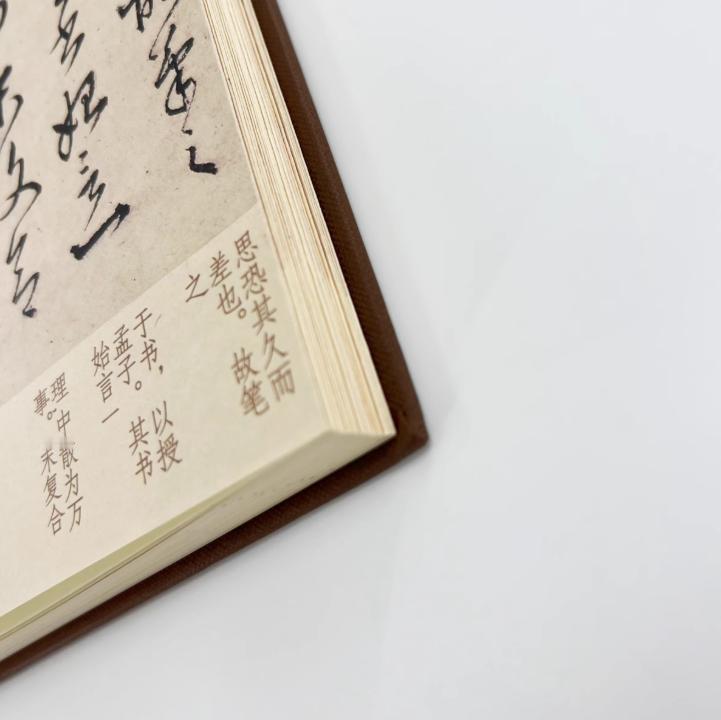 筆之
始言一
思恐其久而
差也。故笔
之
于书，以授
孟子。其书
始言一
理，中散为万
事。末复合